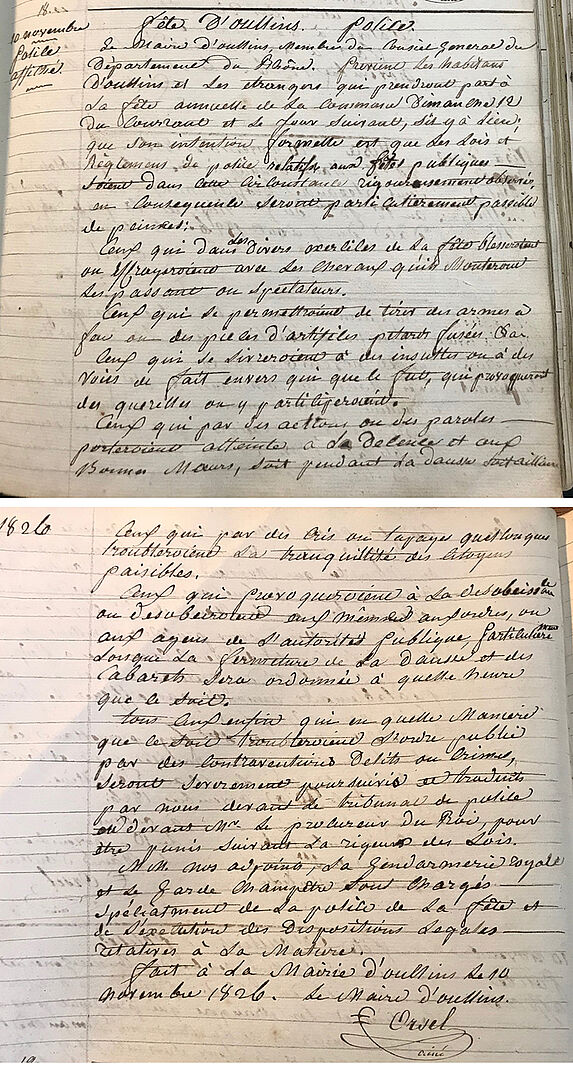 18..
10 novembre
Police
affiché.
Fête D'oullins. Police.
Le Maire d'oullins, Membre du Conseil General du
Département du Rhône. Previent les habitans
D'oullins et les étrangers qui prendront part à
La fête annuelle de La Commune Dimanche 12
Du Courrant et Le Jour Suivant, s'il y a Lieu;
que son intention formelle est que Les Lois et
Réglemens de police relatifs aux fêtes publiques
soient dans cette Circonstance rigoureusement observés,
en Consequence seront particulièrement passible
de peines;
Ceux qui dans Les Divers cercles de La fête blesseroient
ou effrayeroient avec Les Chevaux qu'ils Monteront
Les passant ou spectateurs.
Ceux qui se permettroient de tirer des armes à
feu ou des pieces d'artifices petards fusées &a.
Ceux qui se Livreroient à des insultes ou à des
Voies de fait envers qui que le fut, qui provoqueroient
des querelles ou y participeroient.
Ceux qui par des actions ou des paroles
porteroient atteinte à La Decence et aux
Bonnes Mœurs, soit pendant La danse soit ailleurs
1826
Ceux qui par des Cris ou tapages quelconques
troubleroient La tranquillité des Citoyens
paisibles.
Ceux qui provoqueroient à La desobeissance
ou desobeiroient eux mêmes aux ordres, ou
aux agens de L'autorité Publique, particulièrement
Lorsque La fermeture de La Danse et des
Cabarets sera ordonnée à quelle heure
que ce soit.
Tous Ceux enfin qui en quelle Maniere
que ce soit troubleroient L'ordre public
par des Contraventions Delits ou Crimes,
seront severement poursuivis et traduits
par nous devant Le tribunal de police
ou devant Mr Le procureur du Roi, pour
être punis suivant La rigeur des Lois.
M.M. nos adjoins, La Gendarmerie royale
et Le Garde Champêtre sont Chargés
Spécialment de La police de La fête et
de L'execution des Dispositions Legales
relatives à La Matiere.
fait à La Mairie d'oullins Le 10
novembre 1826. Le Maire d'oullins.
F Orsel
ainé